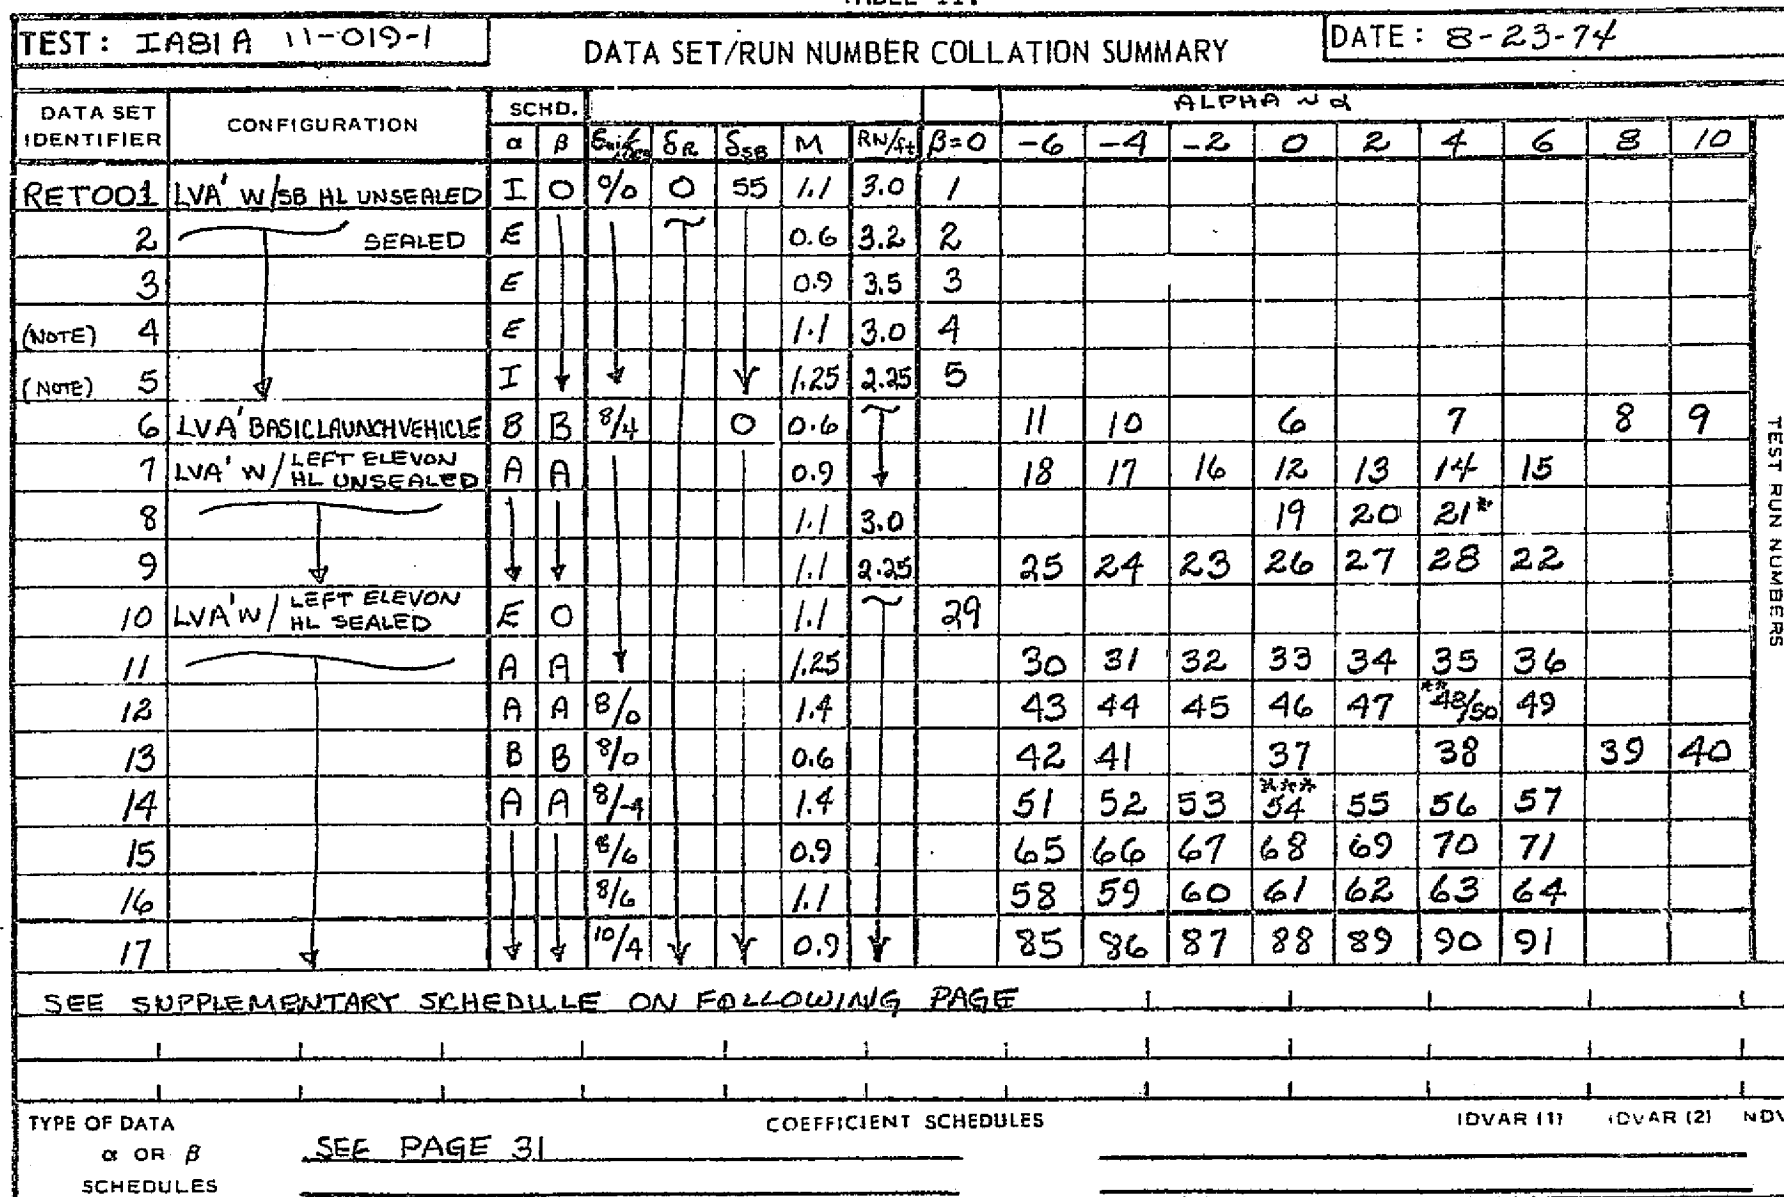 TABLE II.
TEST: IA81A 11-019-1
DATA SET/RUN NUMBER COLLATION SUMMARY
DATE: 8-23-74
DATA SET IDENTIFIER CONFIGURATION SCHD. ALPHA ~ α
α β δR δSB M RN/ft β=0 -6 -4 -2 0 2 4 6 8 10
RET001 LVA' W/SB HL UNSEALED I O 0/0 0 55 1.1 3.0 1
2 SEALED E 0.6 3.2 2
3 E 0.9 3.5 3
(NOTE) 4 E 1.1 3.0 4
(NOTE) 5 I 1.25 2.25 5
6 LVA' BASIC LAUNCH VEHICLE B B 8/4 0 0.6 11 10 6 7 8 9
7 LVA' W/ LEFT ELEVON HL UNSEALED A A 0.9 18 17 16 12 13 14 15
8 1.1 3.0 19 20 21*
9 1.1 2.25 25 24 23 26 27 28 22
10 LVA' W/ LEFT ELEVON HL SEALED E O 1.1 29
11 A A 1.25 30 31 32 33 34 35 36
12 A A 8/0 1.4 43 44 45 46 47 **48/50 49
13 B B 8/0 0.6 42 41 37 38 39 40
14 A A 8/-4 1.4 51 52 53 ***54 55 56 57
15 8/6 0.9 65 66 67 68 69 70 71
16 8/6 1.1 58 59 60 61 62 63 64
17 10/4 0.9 85 86 87 88 89 90 91
TEST RUN NUMBERS
SEE SUPPLEMENTARY SCHEDULE ON FOLLOWING PAGE
TYPE OF DATA COEFFICIENT SCHEDULES IDVAR (1) IDVAR (2) NDV
α OR β SEE PAGE 31
SCHEDULES